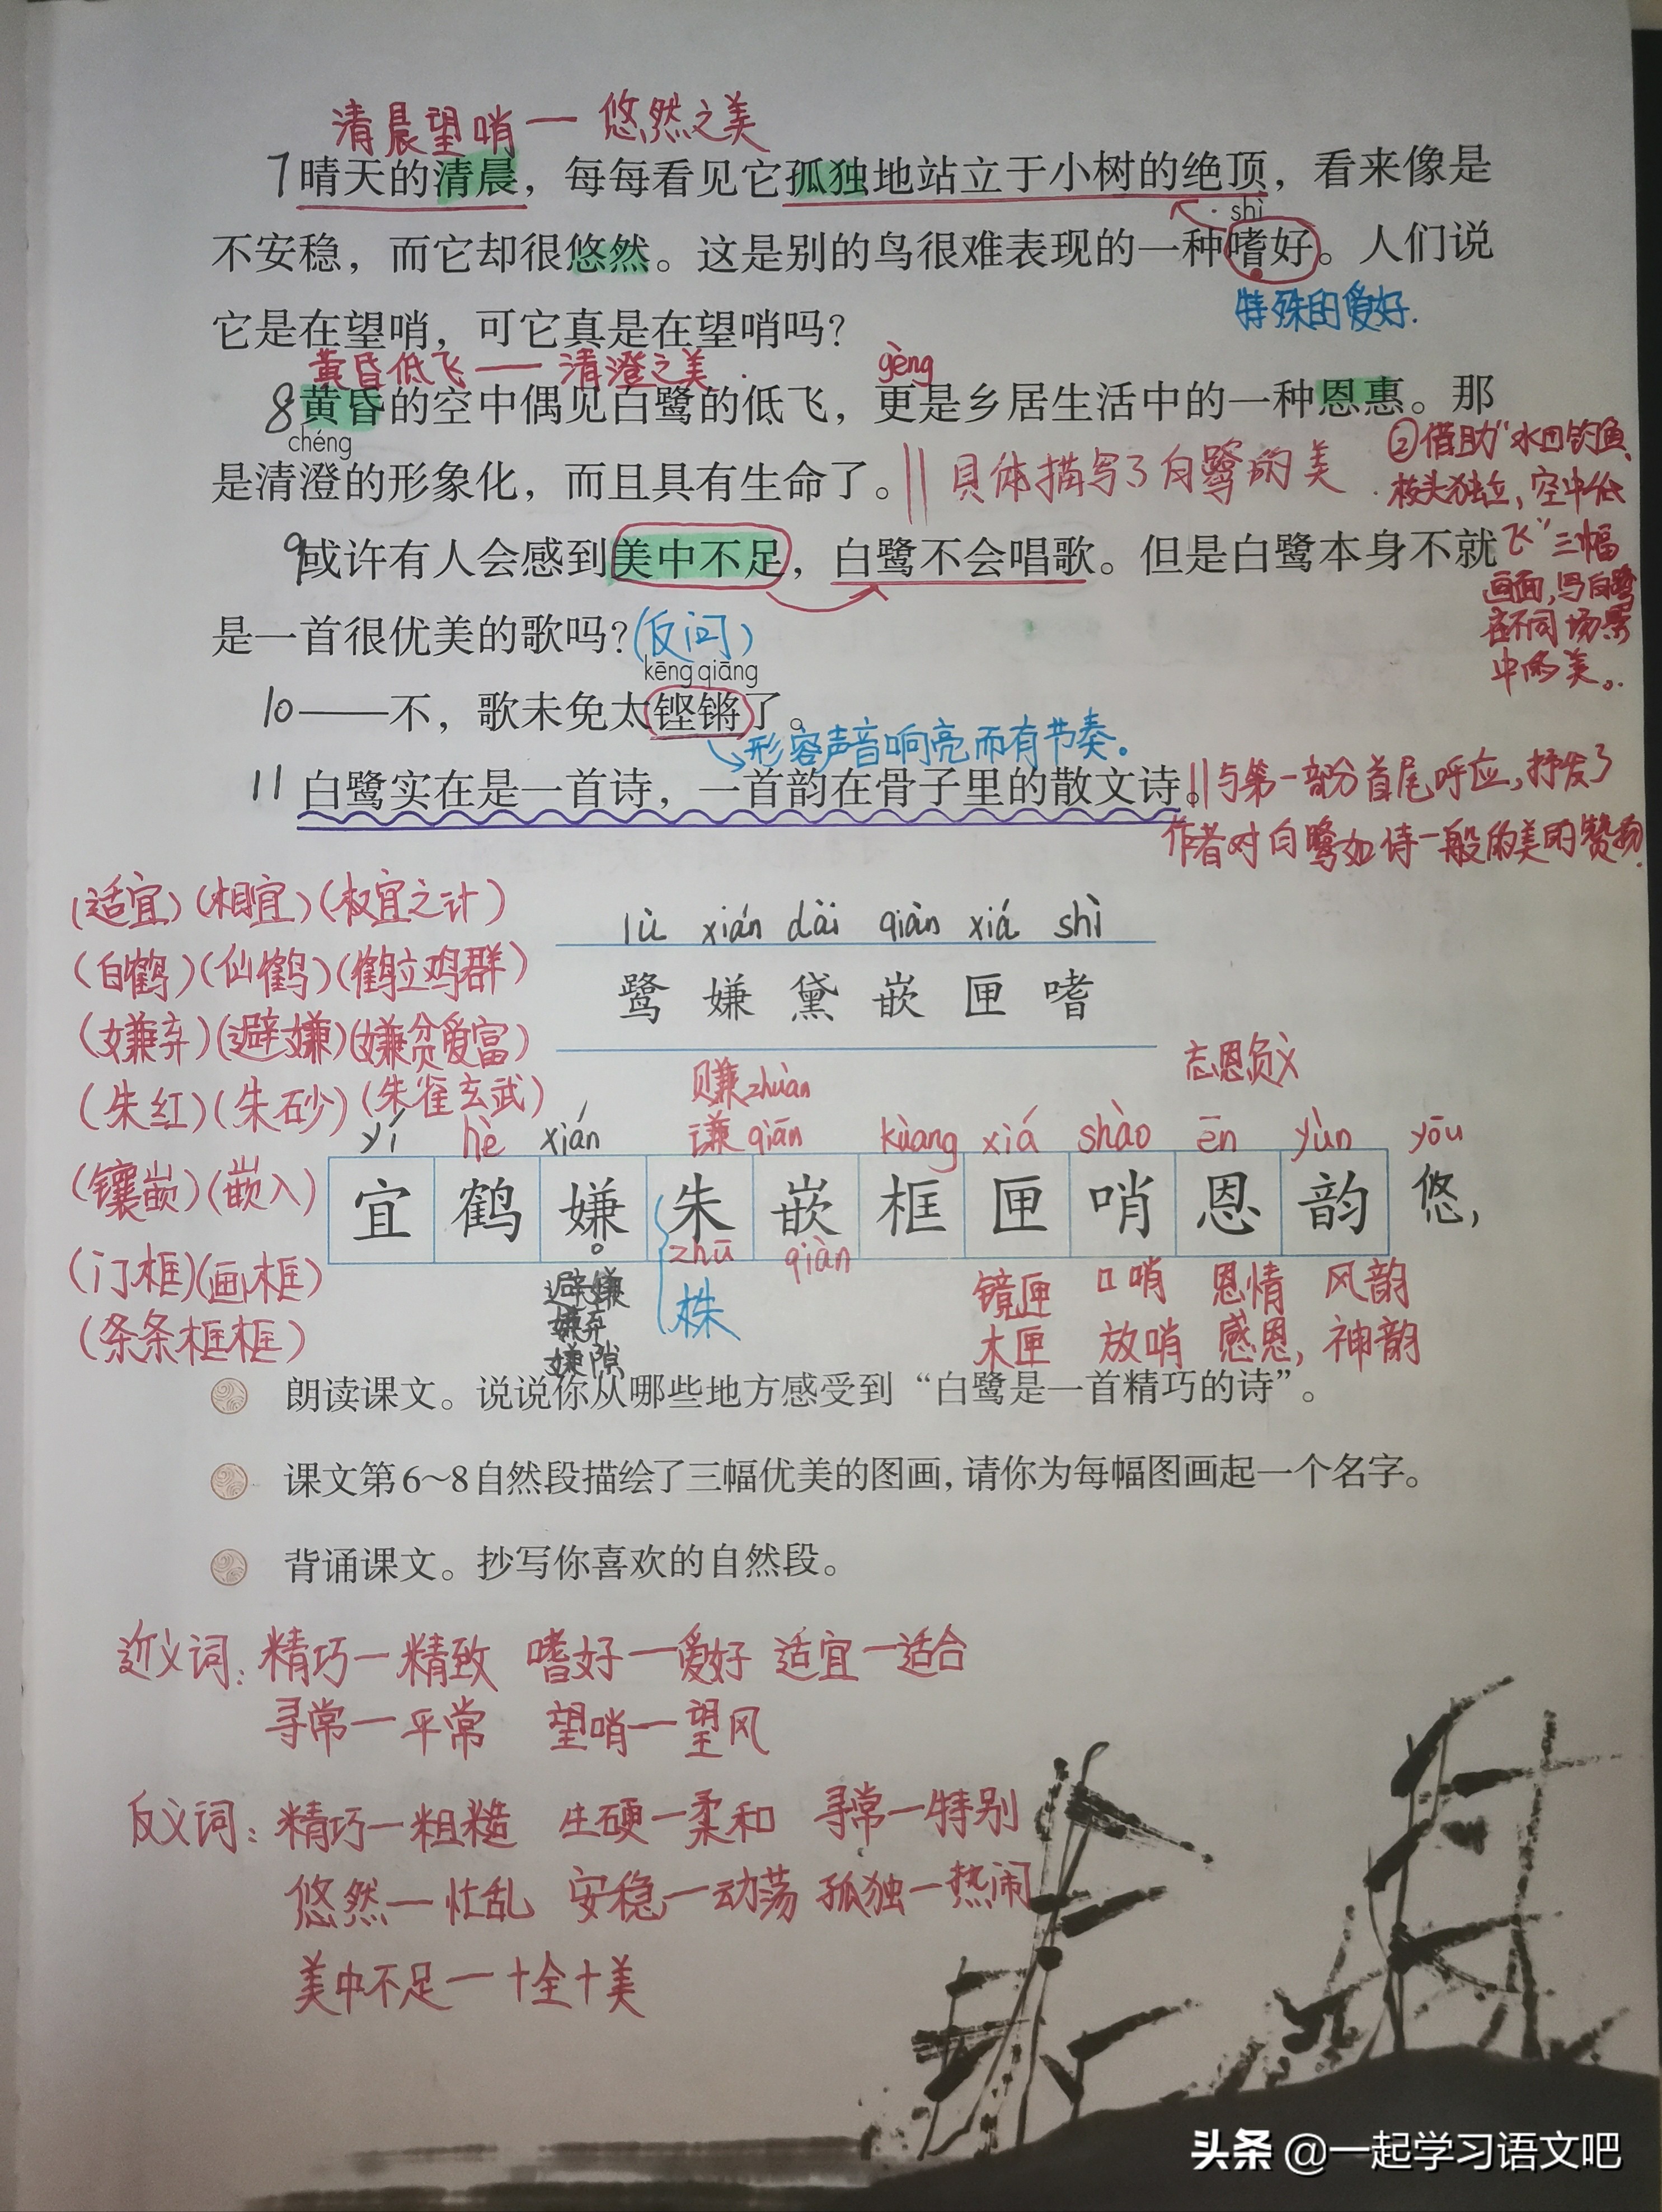 清晨望哨一 悠然之美
7晴天的清晨，每每看见它孤独地站立于小树的绝顶，看来像是
shì
不安稳，而它却很悠然。这是别的鸟很难表现的一种嗜好。人们说
特殊的爱好.
它是在望哨，可它真是在望哨吗？
黄昏低飞——清澄之美
gèng
8黄昏的空中偶见白鹭的低飞，更是乡居生活中的一种恩惠。那
chéng
是清澄的形象化，而且具有生命了。
具体描写了白鹭的美
②借助"水田钓鱼、
枝头独立，空中低
飞"三幅
画面，写白鹭
在不同场景
中的美。
9或许有人会感到美中不足，白鹭不会唱歌。但是白鹭本身不就
是一首很优美的歌吗？(反问)
kēng qiāng
10——不，歌未免太铿锵了。
形容声音响亮而有节奏。
11白鹭实在是一首诗，一首韵在骨子里的散文诗。
与第一部分首尾呼应，抒发了
作者对白鹭如诗一般的美的赞扬.
(适宜)(相宜)(权宜之计)
(白鹤)(仙鹤)(鹤立鸡群)
(嫌弃)(避嫌)(嫌贫爱富)
(朱红)(朱砂)(朱雀玄武)
(镶嵌)(嵌入)
(门框)(画框)
(条条框框)
lù xián dài qiàn xiá shì
鹭 嫌 黛 嵌 匣 嗜
赚zhuàn
谦qiān
忘恩负义
yí hè xián kuàng xiá shào ēn yùn yōu
宜 鹤 嫌 朱 嵌 框 匣 哨 恩 韵 悠，
zhū qiàn
避嫌
嫌弃
嫌隙
株
镜匣 口哨 恩情 风韵
木匣 放哨 感恩，神韵
朗读课文。说说你从哪些地方感受到“白鹭是一首精巧的诗”。
课文第6～8自然段描绘了三幅优美的图画，请你为每幅图画起一个名字。
背诵课文。抄写你喜欢的自然段。
近义词：精巧一精致 嗜好一爱好 适宜一适合
寻常一平常 望哨一望风
反义词：精巧一粗糙 生硬一柔和 寻常一特别
悠然一忙乱 安稳一动荡 孤独一热闹
美中不足一十全十美
头条 @一起学习语文吧